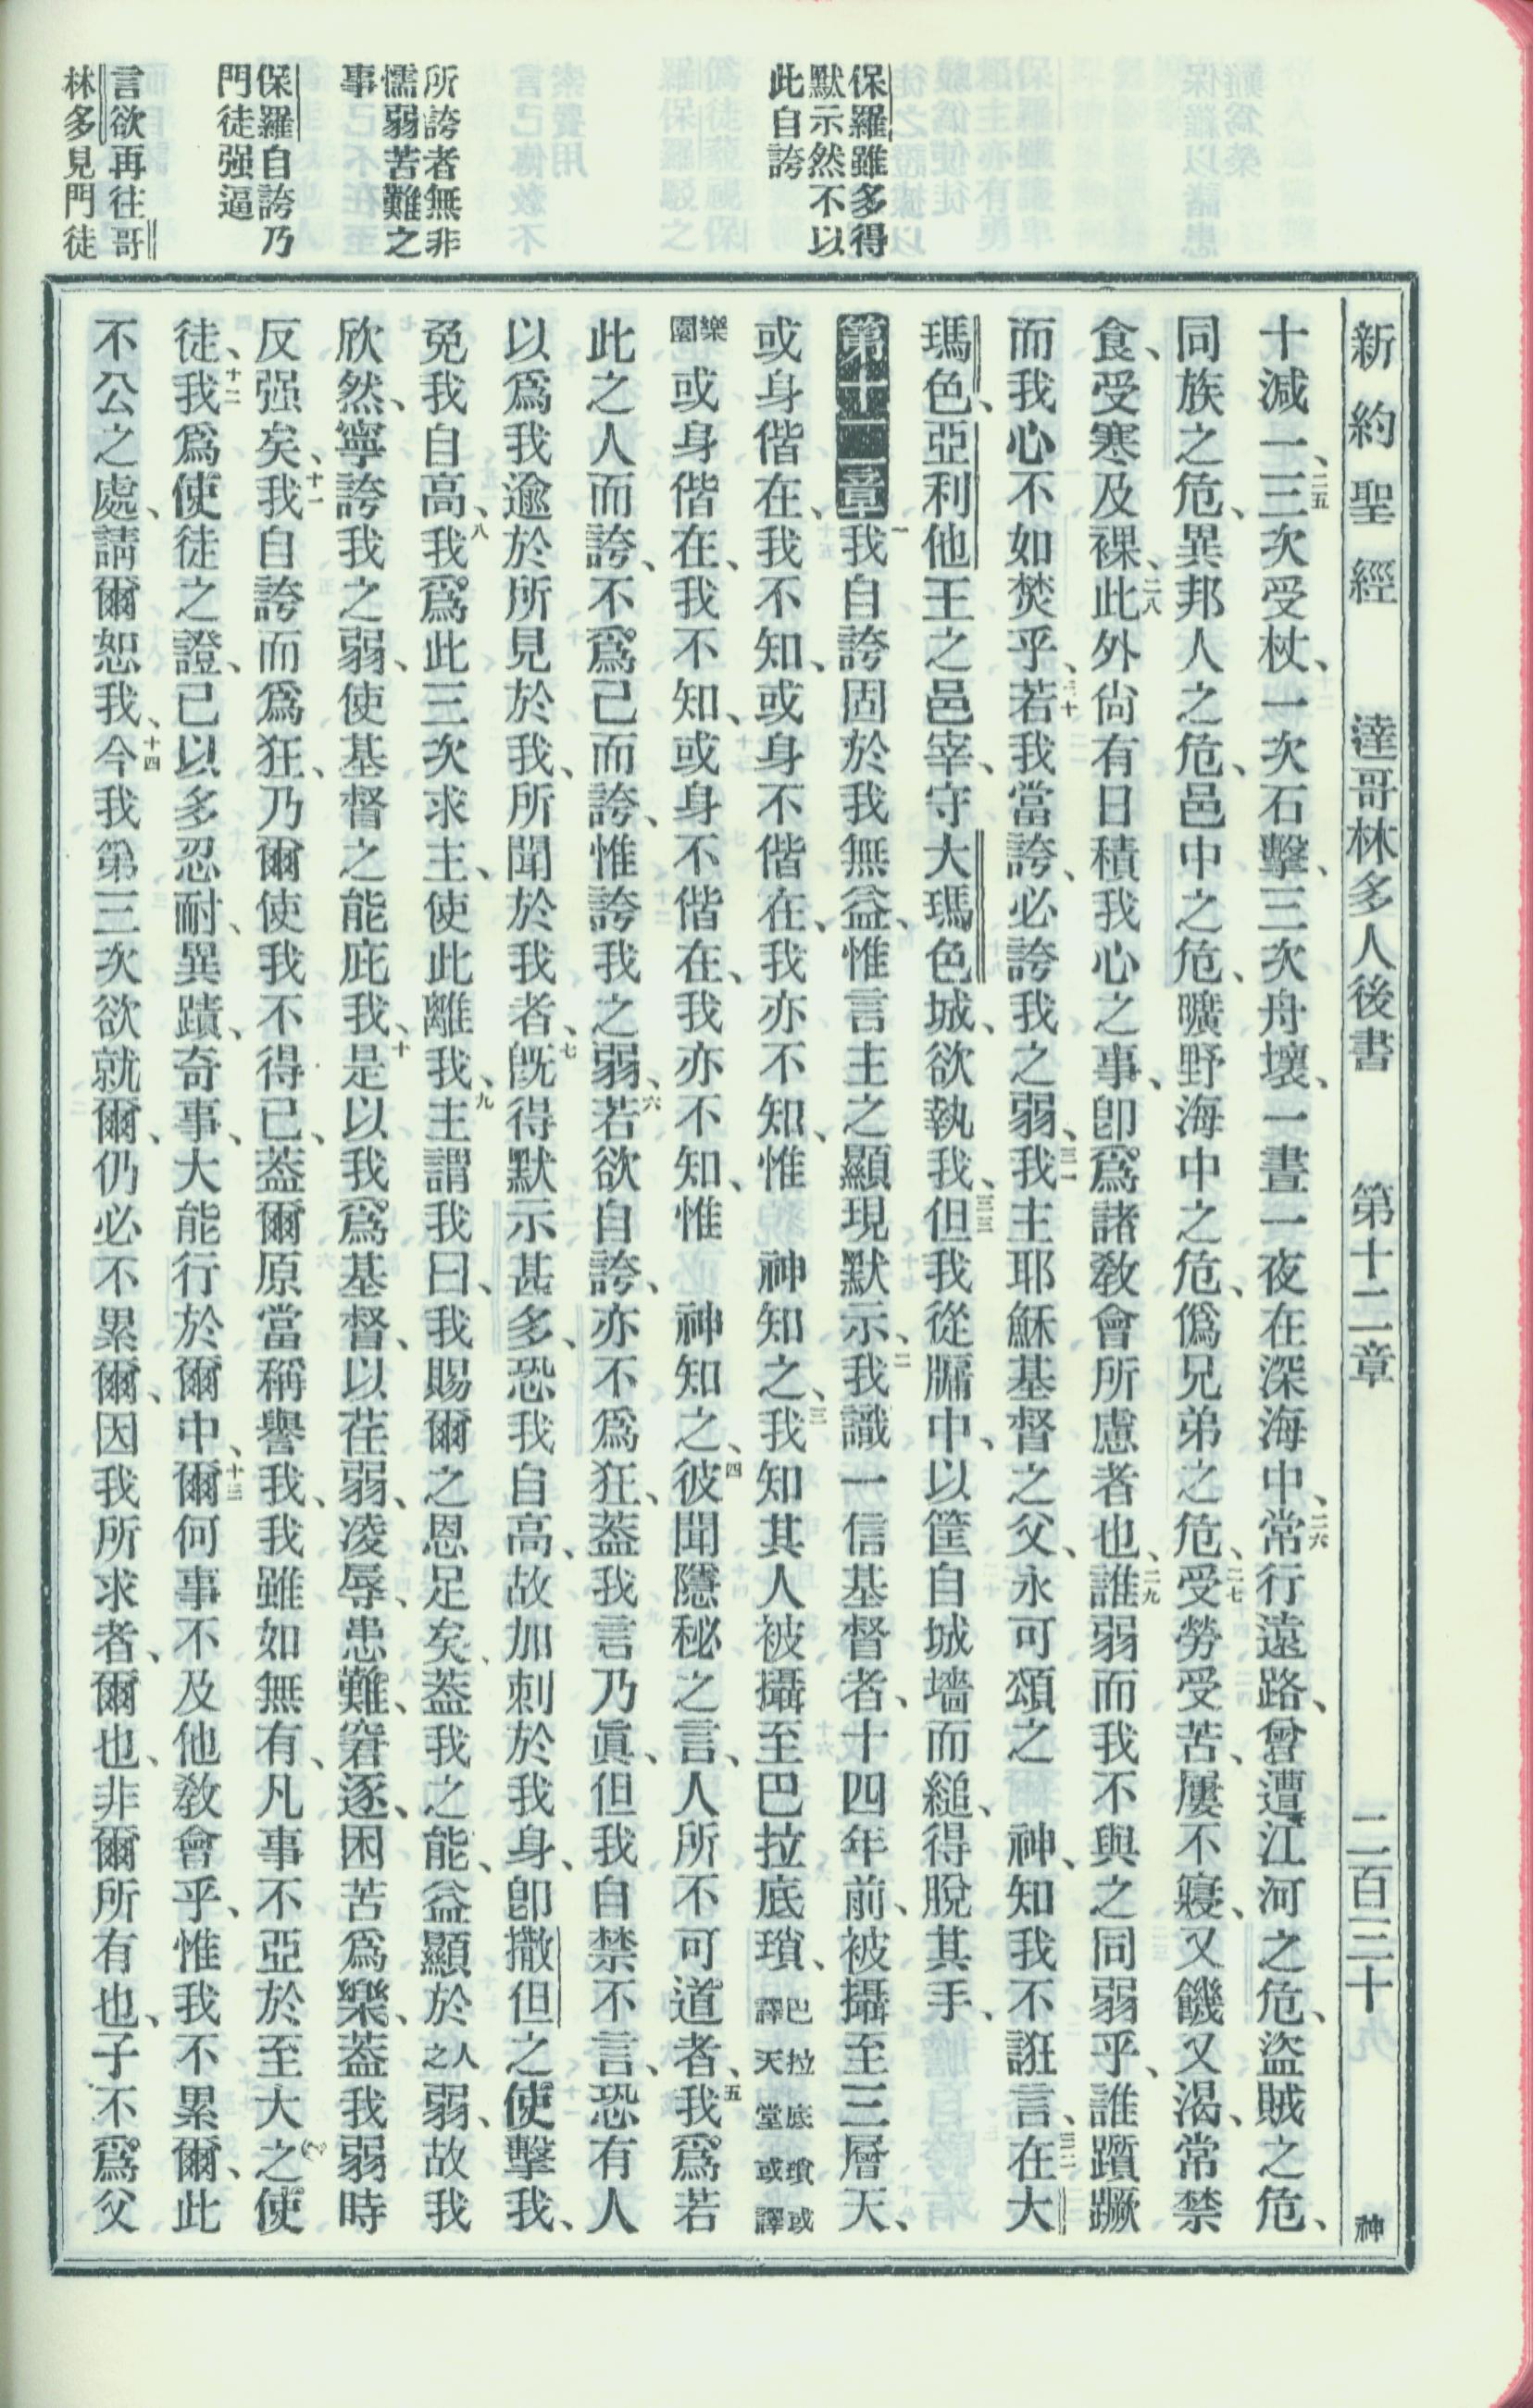 新約聖經 達哥林多人後書 第十二章 二百三十 神
保羅雖多得
默示然不以
此自誇
所誇者無非
懦弱苦難之
事
保羅自誇乃
門徒强逼
言欲再往哥
林多見門徒
十減一、二五三次受杖、一次石擊、三次舟壞、一晝一夜在深海中、二六常行遠路、曾遭江河之危、盜賊之危、
同族之危、異邦人之危、邑中之危、曠野海中之危、僞兄弟之危、二七受勞受苦、屢不寢、又饑又渴、常禁
食、受寒及裸、二八此外尙有日積我心之事、卽爲諸敎會所慮者也、二九誰弱而我不與之同弱乎、誰躓蹶
而我心不如焚乎、三十若我當誇、必誇我之弱、三一我主耶穌基督之父、永可頌之 神、知我不誑言、三二在大
瑪色、亞利他王之邑宰、守大瑪色城、欲執我、三三但我從牖中、以筐自城墻而縋、得脫其手、
第十二章 一我自誇固於我無益、惟言主之顯現默示、二我識一信基督者、十四年前、被攝至三層天、
或身偕在、我不知、或身不偕在、我亦不知、惟 神知之、三我知其人被攝至巴拉底瑣、巴拉底瑣或譯天堂或譯
樂園或身偕在、我不知、或身不偕在、我亦不知、惟 神知之、四彼聞隱秘之言、人所不可道者、五我爲若
此之人而誇、不爲己而誇、惟誇我之弱、六若欲自誇、亦不爲狂、蓋我言乃眞、但我自禁不言、恐有人
以爲我逾於所見於我、所聞於我者、七旣得默示甚多、恐我自高、故加刺於我身、卽撒但之使擊我、
免我自高、八我爲此三次求主、使此離我、九主謂我曰、我賜爾之恩足矣、蓋我之能、益顯於人之弱、故我
欣然、寧誇我之弱、使基督之能庇我、十是以我爲基督、以荏弱、凌辱、患難、窘逐、困苦爲樂、蓋我弱時
反强矣、十一我自誇而爲狂、乃爾使我不得已、蓋爾原當稱譽我、我雖如無有、凡事不亞於至大之使
徒、十二我爲使徒之證、已以多忍耐、異蹟、奇事、大能行於爾中、十三爾何事不及他敎會乎、惟我不累爾、此
不公之處、請爾恕我、十四今我第三次欲就爾、仍必不累爾、因我所求者、爾也、非爾所有也、子不爲父